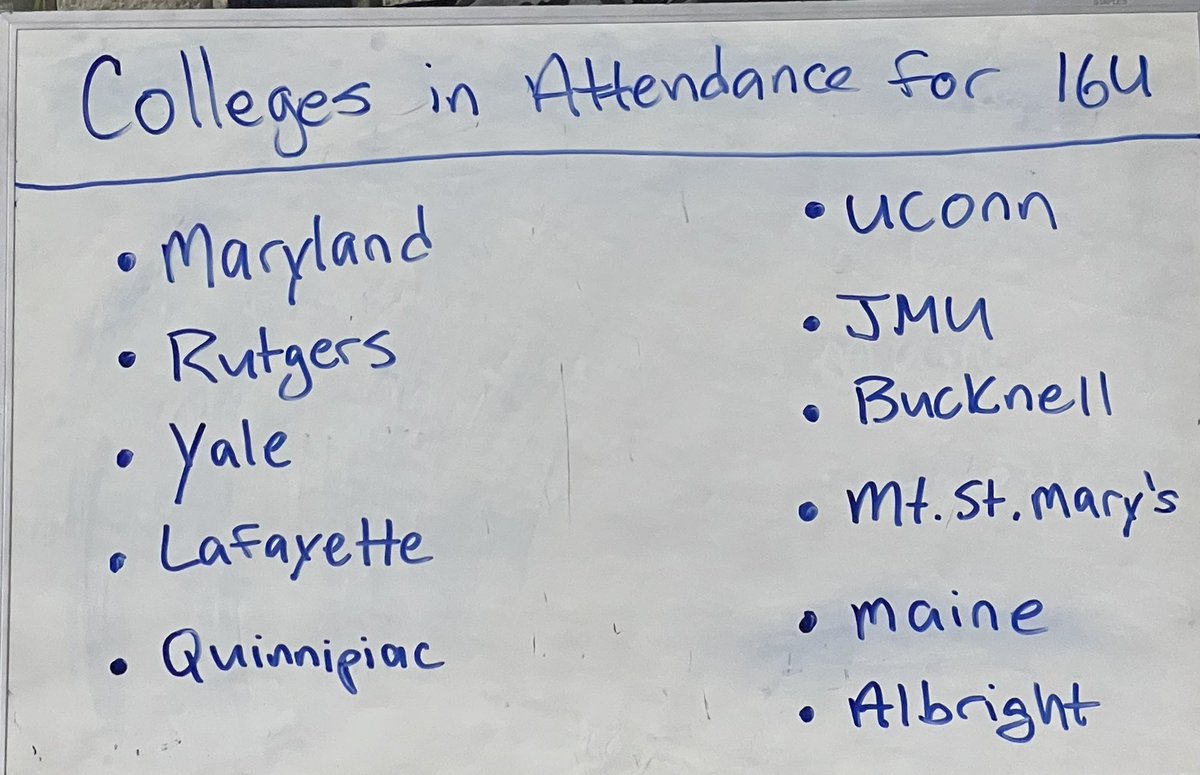 Colleges in Attendance for 16U
• Maryland
• Rutgers
• Yale
• Lafayette
• Quinnipiac
• UCONN
• JMU
• Bucknell
• Mt. St. Mary's
• Maine
• Albright